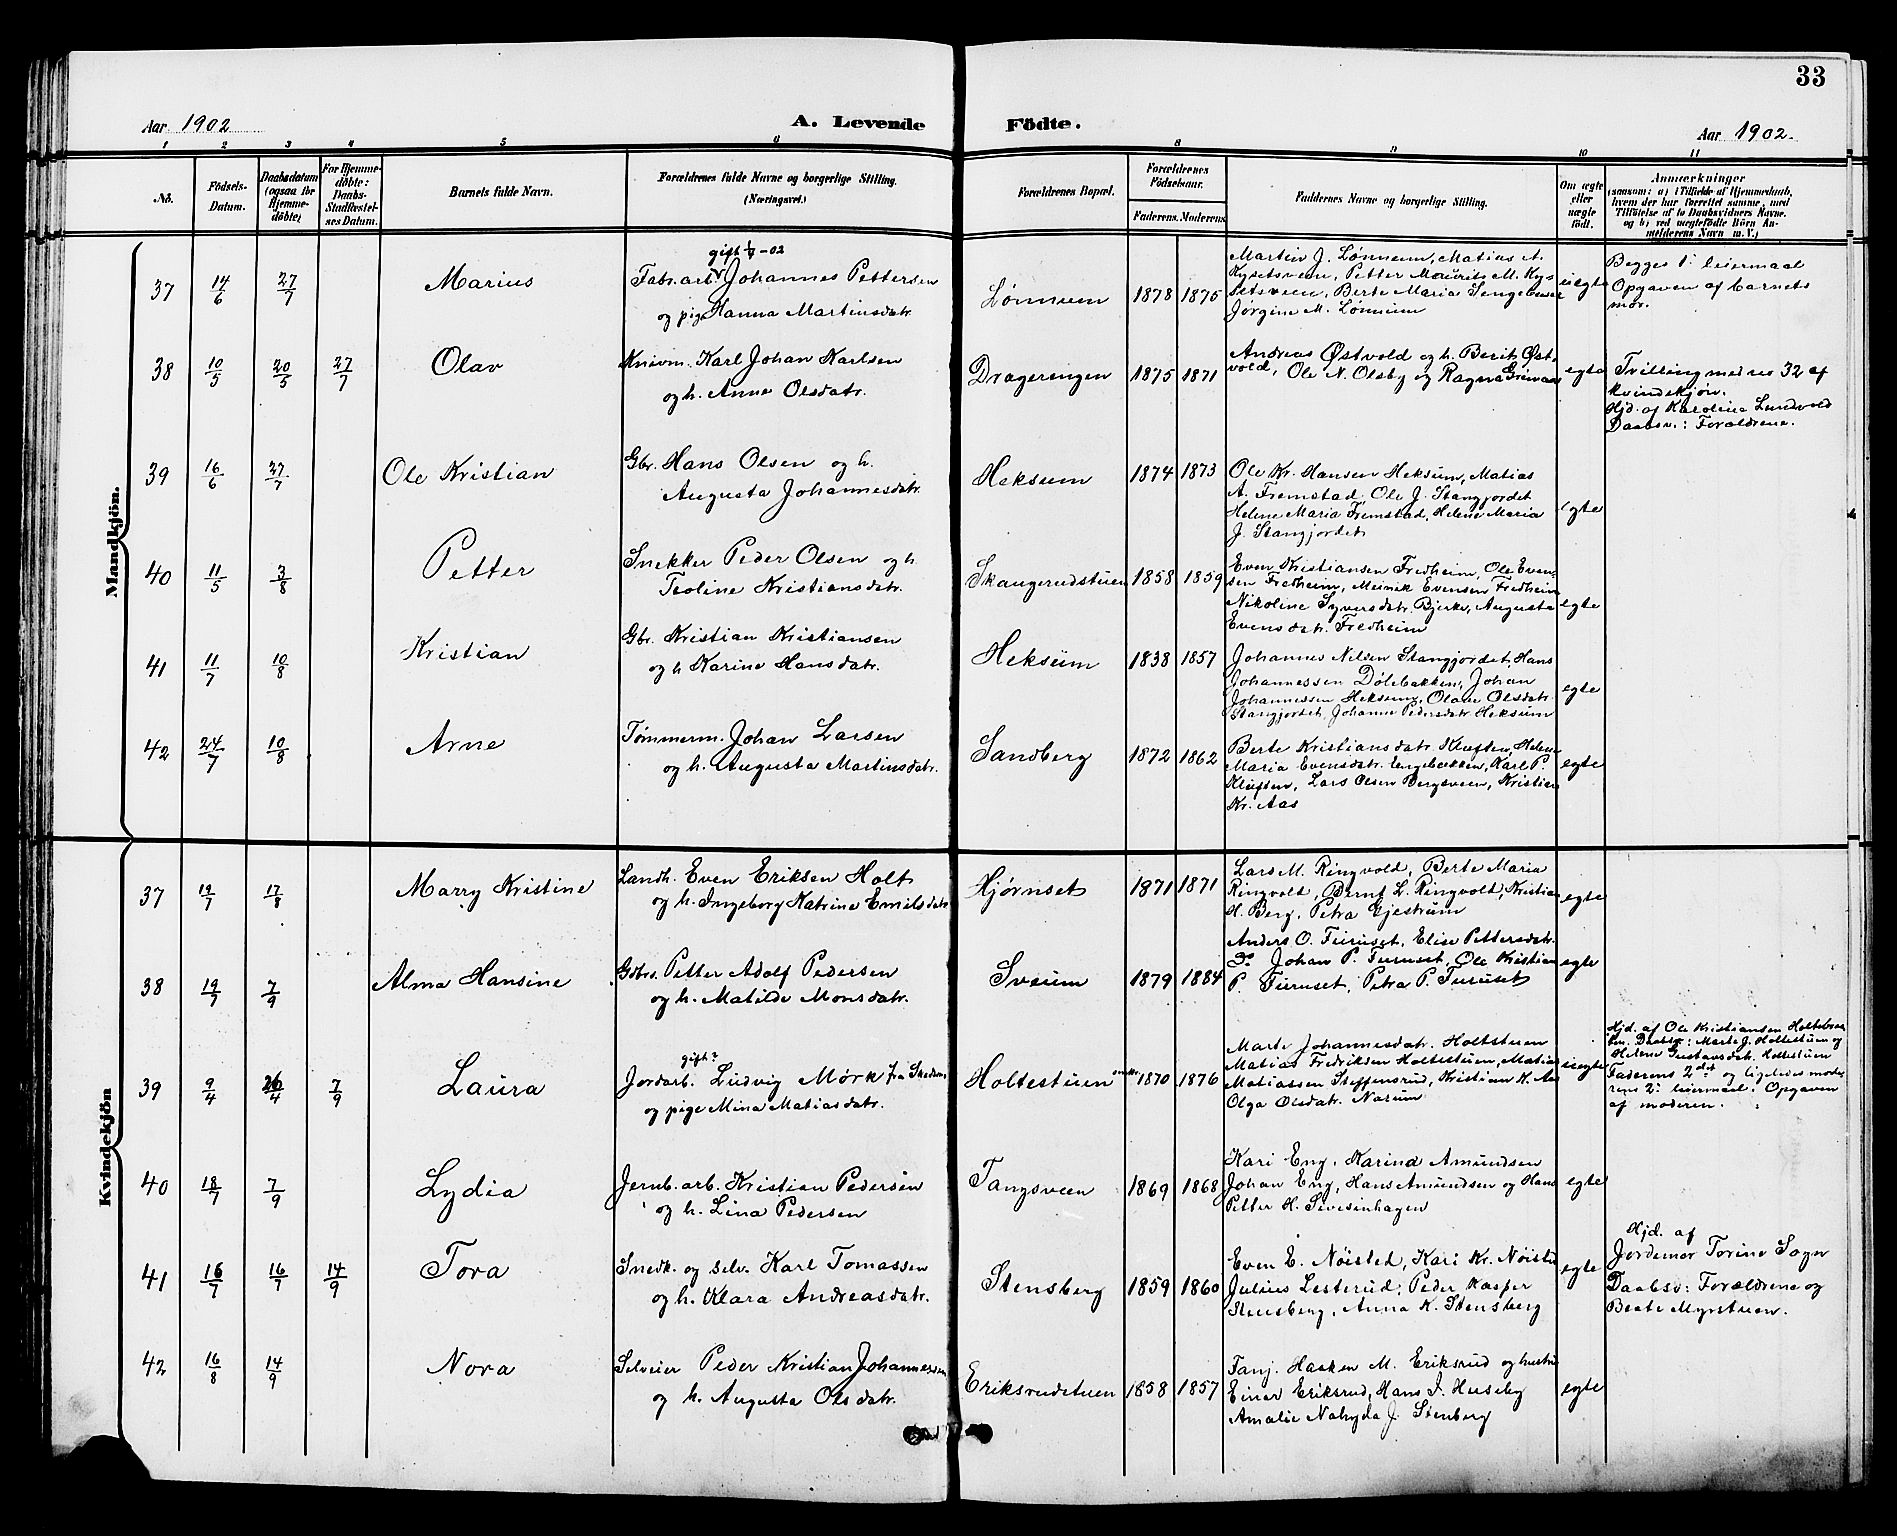 33
Aar 1902
A. Levende Födte.
Aar 1902.
1 2 3 4 5 6 8 9 10 11
No.
Födsels-
Datum.
Daabsdatum
(ogsaa for
Hjemme-
döbte)
For Hjemme-
döbte:
Daabs-
Stadfæstel-
ses Datum.
Barnets fulde Navn.
Forældrenes fulde Navne og borgerlige Stilling.
(Næringsvei.)
Forældrenes Bopæl.
Forældrenes
Födselsaar.
Faderens. Moderens.
Faddernes Navne og borgerlige Stilling.
Om ægte
eller
uægte
födt.
Anmærkninger
(saasom: a) i Tilfælde af Hjemmedaab,
hvem der har forrettet samme, med
Tilföielse af to Daabsvidners Navne.
og b) ved uægtefödte Börn An-
melderens Navn m. V.)
Mandkjön.
37 14/6 27/7 Marius
gift 1/7-02
Fabr.arb. Johannes Pettersen
og pige Hanna Martinsdatr.
Lønnum 1878 1875
Martin J. Lønnum, Matias A.
Kysetsveen, Petter Maurits M. Ky-
setsveen, Berte Maria
Jørgine M. Lønnum
uegte
Begges 1ᵗᵉ leiermaal
Opgaven af barnets
mor.
38 10/5 20/5 27/7 Olav
Knivm. Karl Johan Karlsen
og h. Anne Olsdatr.
Dragerengen 1875 1871
Andreas Østvold og h. Berit Øst-
vold, Ole N. Olsby og Ragna
egte
Tvilling med no 32 af
kvindekjøn.
Hjd. af Karoline Lundvold
Daabsv.: Forældrene.
39 16/6 27/7 Ole Kristian
Gbr. Hans Olsen og h.
Augusta Johannesdatr.
Heksum 1874 1873
Ole Kr. Hansen Heksum, Matias
A. Fremstad, Ole J. Stangjordet
Helene Maria Fremstad, Helene Maria
J. Stangjordet
egte
40 11/5 3/8 Petter
Snekker Peder Olsen og h
Teoline Kristiansdatr.
Skaugerudstuen 1858 1859
Even Kristiansen Fredheim, Ole Even-
sen Fredheim, Meinik Evensen Fredheim
Nikoline Syversdatr. Bjerke, Augusta
Evensdatr. Fredheim
egte
41 11/7 10/8 Kristian
Gbr. Kristian Kristiansen
og h Karine Hansdatr.
Heksum 1838 1857
Johannes Nilsen Stangjordet, Hans
Johannessen Dølebakken, Johan
Johannessen Heksum, Olave Olsdatr.
Stangjordet, Johanne Pedersdatr. Heksum
egte
42 24/7 10/8 Arne
Tømmerm. Johan Larsen
og h. Augusta Martinsdatr.
Sandberg 1872 1862
Berte Kristiansdatr. Kluften, Helene
Maria Evensdatr. Engebakken, Karl P.
Kluften, Lars Olsen Bergsveen, Kristian
Kr. Aas
egte
Kvindekjön
37 19/7 17/8 Marry Kristine
Landh. Even Eriksen Holt
og h. Ingeborg Katrine Emilsdatr
Hjørnset 1871 1871
Lars M. Ringvold, Berte Maria
Ringvold, Bernt L. Ringvold, Kristian
H. Berg, Petra Gjestrum
egte
38 19/7 7/9 Alma Hansine
Gdbrs. Petter Adolf Pedersen
og h. Matilde Monsdatr.
Sveum 1879 1884
Anders O. Furuset, Elise Pettersdatr.
Do Johan P. Furuset, Ole Kristian
P. Furuset, Petra P. Furuset
egte
39 9/4 26/4 7/9 Laura
gift?
Jordarb. Ludvig Mørk fra Skedsmo
og pige Mina Matiasdatr.
Holtestuen 1870 1876
Marte Johannesdatr. Holtstuen
Matias Fredriksen Holtestuen, Matias
Matiassen Steffensrud, Kristian H. Aas
Olga Olsdatr. Narum
uegte
Hjd. af Ole Kristiansen
Daabsv: Marte J. Holtestuen og
Helene Gustavsdatr. Holtestuen
Faderens 2det og ligeledes mode-
rens 2. leiermaal. Opgaven
af moderen.
40 18/7 7/9 Lydia
Jernb.arb. Kristian Pedersen
og h. Lina Pedersen
Tangsveen 1869 1868
Kari Eng, Karina Amundsen
Johan Eng, Hans Amundsen og Hans
Petter H.
egte
41 16/7 16/7 14/9 Tora
Snedk. og selv. Karl Tomassen
og h. Klara Andreasdatr.
Stensberg 1859 1860
Even E. Nøisted, Kari Kr. Nøisted
Julius Lesterud, Peder Kasper
Stensberg, Anna K. Stensberg
egte
Hjd. af
Jordemor Torine Sogn
Daabsv: Forældrene og
Beate Myrstuen.
42 16/8 14/9 Nora
Selveier Peder Kristian Johannessen
og h. Augusta Olsdatr.
Eriksrudstuen 1858 1857
Fanj. Haaken M. Eriksrud og hustru
Einar Eriksrud, Hans J. Huseby
Amalie J. Stenberg
egte